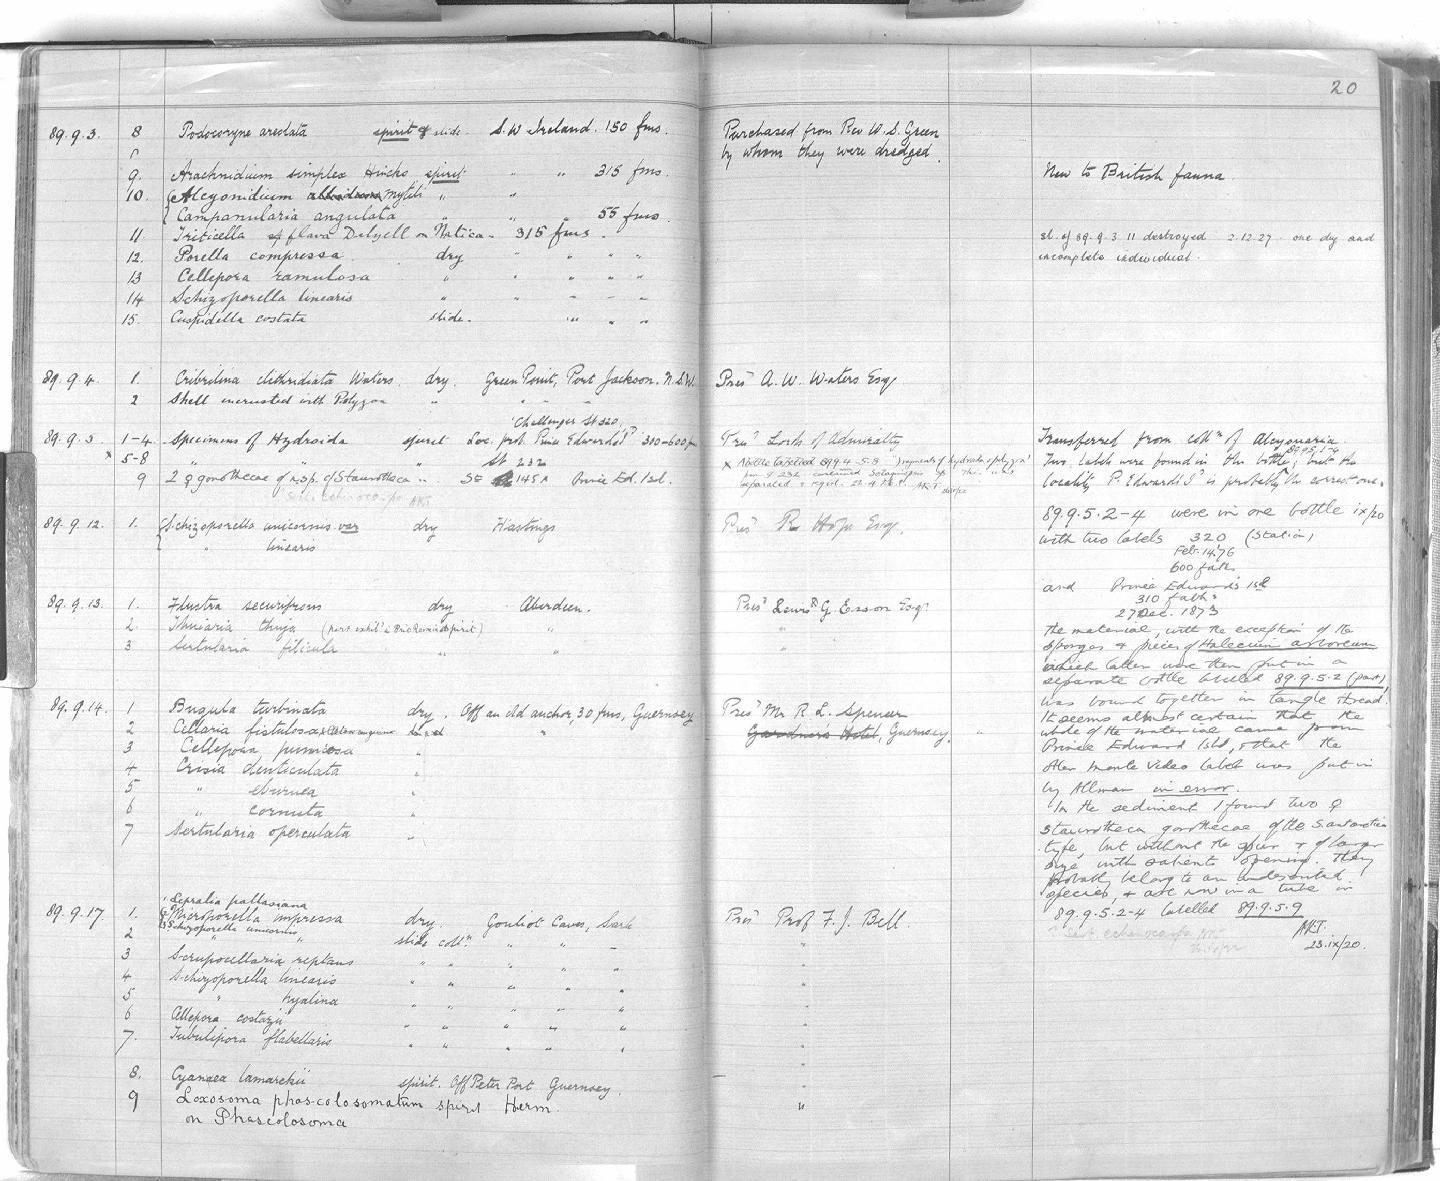 20
89.9.3. 8 Podocoryne areolata spirit & slide. S.W Ireland. 150 fms. Purchased from Rev W. S. Green
by whom they were dredged.
9. Arachnidium simplex Hincks spirit " " 315 fms. New to British fauna.
10. Alcyonidium mytili " "
Campanularia angulata " " " 55 fms.
11. Triticella flava Dalyell on Natica. 315 fms. sl. of 89.9.3.11 destroyed 2.12.27. one dry and
incomplete individual.
12. Porella compressa dry " " " "
13 Cellepora ramulosa " " " " "
14 Schizoporella linearis " " " " "
15. Cuspidella costata slide. " " "
89.9.4. 1. Cribrilina clithridiata Waters. dry. Green Point, Port Jackson. N.S.W. Pres^d A. W. Waters Esq
2 Shell encrusted with Polyzoa " " " "
'Challenger St 320,
89.9.5. 1-4 Specimens of Hydroida spirit Loc. prob Prince Edwards I^d 310-600 fm Pres^d Lords of Admiralty Transferred from coll^n of Alcyonaria.
x 5-8 " " St 232 x Bottle labelled 89.9.4.5-8 fragments of hydroids & polyzoa Two labels were found in the bottle of 89.9.5.1-4; but the
9 2 ♀ gonothecae of n.sp. of Staurotheca " St 145A Prince Ed. Isl. locality P. Edwards I^d is probably the correct one.
89.9.12. 1. Schizoporella unicornis var dry Hastings Pres^d R. Hope Esq.
" linearis
89.9.5.2-4 were in one bottle ix/20
with two labels 320 (Station)
Feb. 14.76
600 faths
and Prince Edwards Is^d
310 faths
27 Dec. 1873
89.9.13. 1. Flustra securifrons dry Aberdeen. Pres^d Lewis G. Esson Esq.
2. Thuiaria thuja " "
3 Sertularia filicula " " "
the material, with the exception of the
sponges & pieces of Halecium arboreum
which latter were then put in a
separate bottle labelled 89.9.5.2 (part)
was bound together in tangle thread.
It seems almost certain that the
whole of the material came from
Prince Edward Isld, & that the
other Monte Video label was put in
by Allman in error.
In the sediment I found two ♀
Staurotheca gonothecae of the S. antarctica
type, but without the spur & of larger
size, with salient opening. They
probably belong to an undescribed
species, & are now in a tube in
89.9.5.2-4 labelled 89.9.5.9
23.ix/20.
89.9.14. 1 Bugula turbinata dry. Off an old anchor, 30 fms, Guernsey Pres^d Mr R. L. Spencer
2 Cellaria fistulosa " Gardners Hotel, Guernsey.
3 Cellepora pumicosa "
4 Crisia denticulata "
5 " eburnea "
6 " cornuta "
7 Sertularia operculata "
Lepralia pallasiana
89.9.17. 1. Microporella impressa dry. Gouliot Caves, Sark Pres^d Prof F. J. Bell.
2 Schizoporella unicornis slide coll^n " " " "
3 Scrupocellaria reptans " " " " " "
4 Schizoporella linearis " " " " " "
5 " hyalina " " " " " "
6 Cellepora costazii " " " " " "
7. Tubulipora flabellaris " " " " " "
8. Cyanaea lamarckii spirit. Off Peter Port Guernsey. "
9 Loxosoma phascolosomatum spirit Herm. "
on Phascolosoma